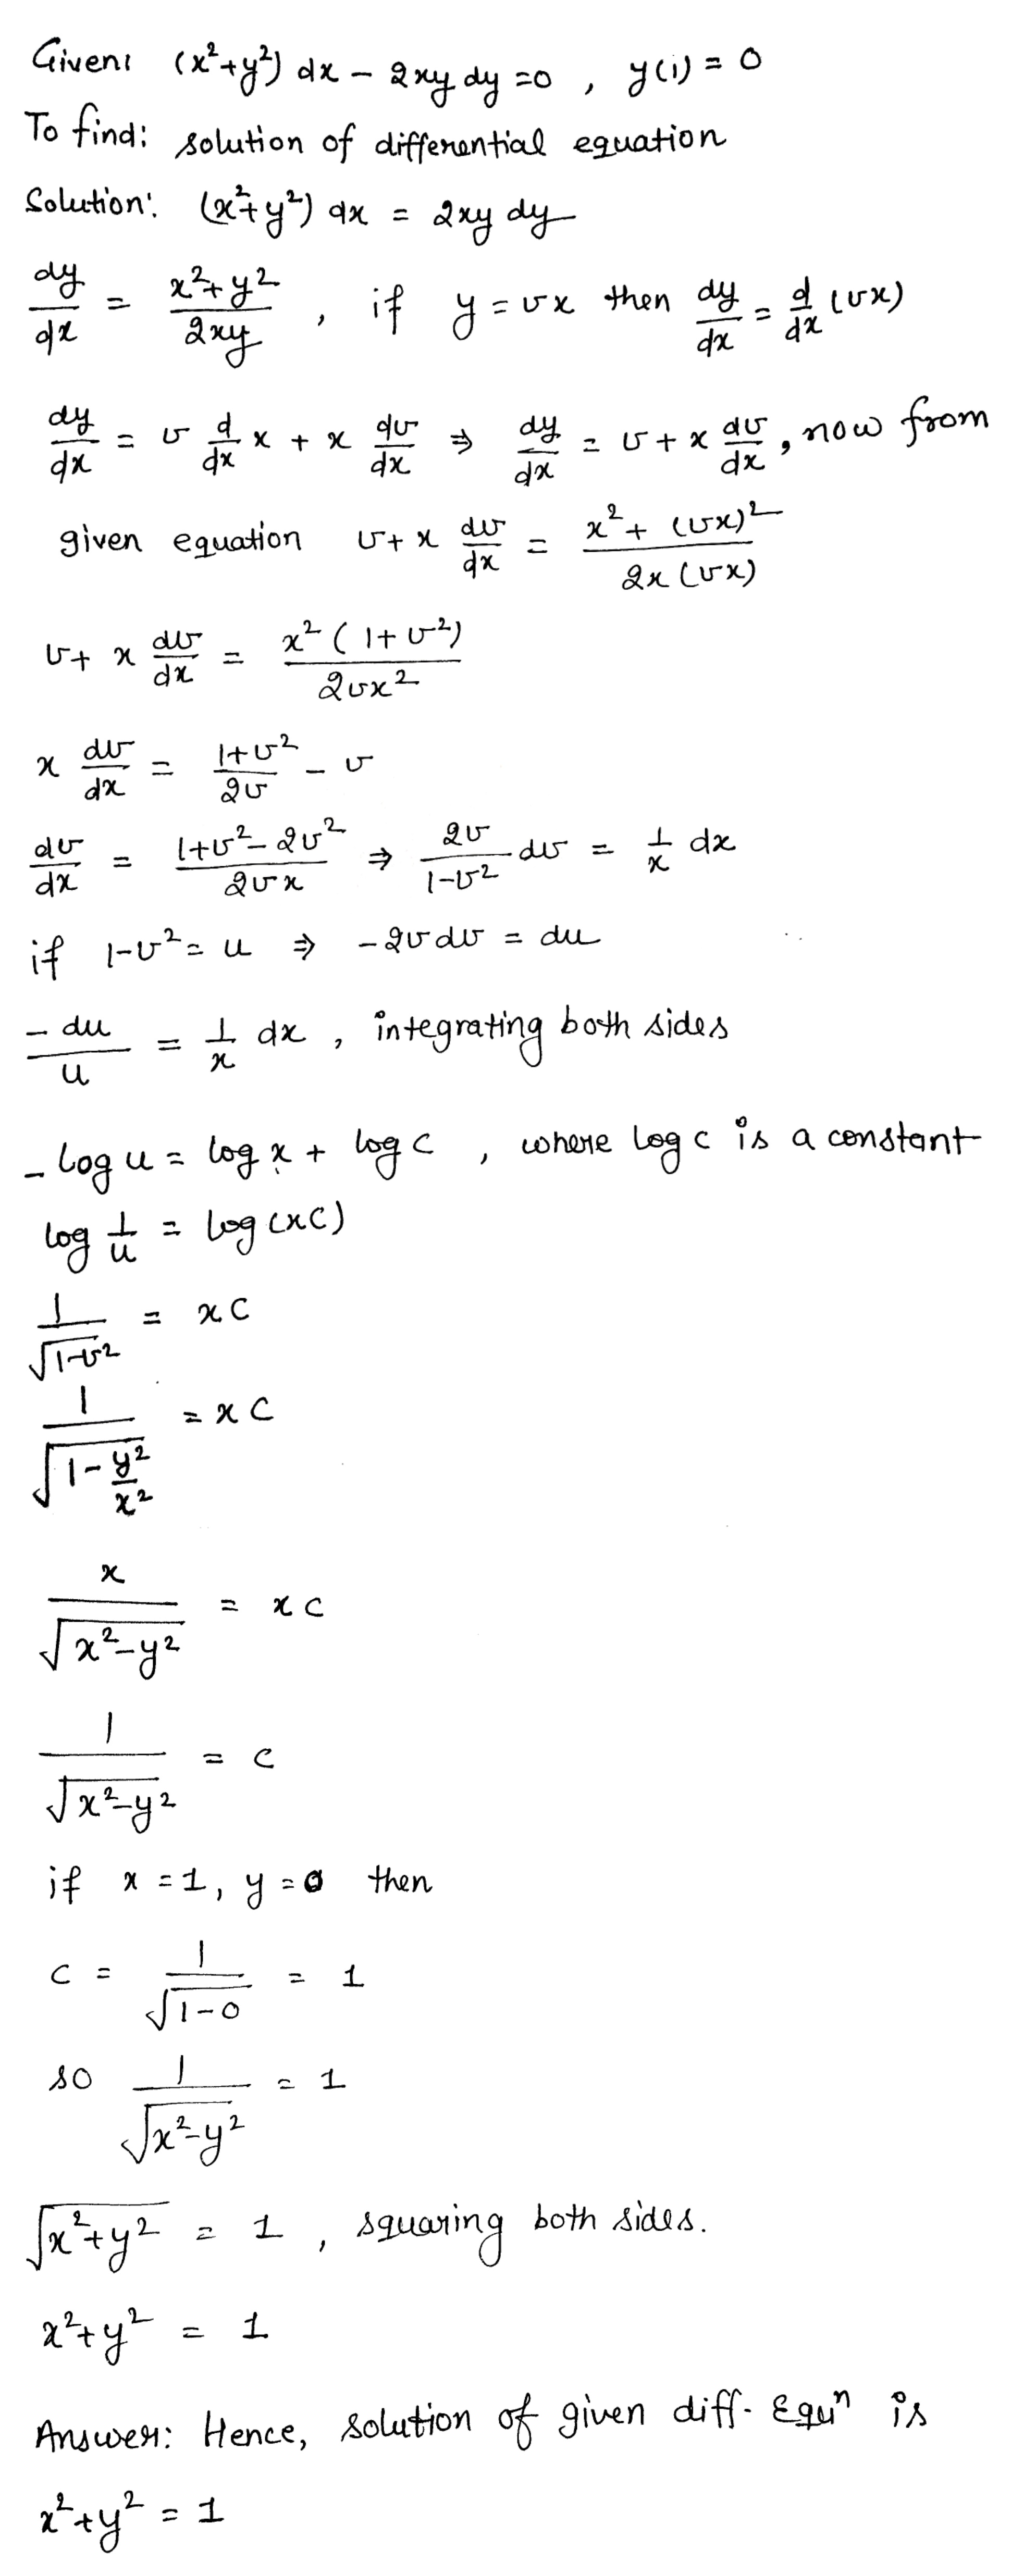 Given: (x²+y²) dx - 2xy dy = 0 , y(1) = 0
To find: solution of differential equation
Solution: (x²+y²) dx = 2xy dy
dy/dx = (x²+y²)/(2xy) , if y = vx then dy/dx = d/dx (vx)
dy/dx = v d/dx x + x dv/dx ⇒ dy/dx = v + x dv/dx , now from
given equation v + x dv/dx = (x² + (vx)²)/(2x(vx))
v + x dv/dx = x²(1+v²)/(2vx²)
x dv/dx = (1+v²)/(2v) - v
dv/dx = (1+v²-2v²)/(2vx) ⇒ 2v/(1-v²) dv = 1/x dx
if 1-v² = u ⇒ -2v dv = du
-du/u = 1/x dx , integrating both sides
-log u = log x + log c , where log c is a constant
log 1/u = log (xc)
1/√(1-v²) = xc
1/√(1-y²/x²) = xc
x/√(x²-y²) = xc
1/√(x²-y²) = c
if x = 1, y = 0 then
c = 1/√(1-0) = 1
so 1/√(x²-y²) = 1
√(x²+y²) = 1 , squaring both sides.
x²+y² = 1
Answer: Hence, solution of given diff. Equⁿ is
x²+y² = 1